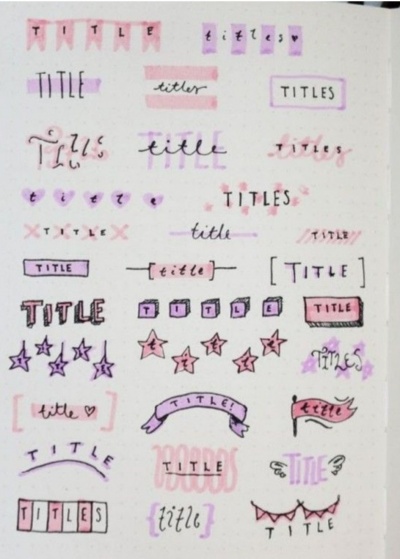 TITLE titles
TITLE titles TITLES
TITLE title TITLES
title TITLES
TITLE title TITLE
TITLE title TITLE
TITLE TITLE TITLE
title title TITLES
title TITLE! title
TITLE TITLE TITLE
TITLES title TITLE